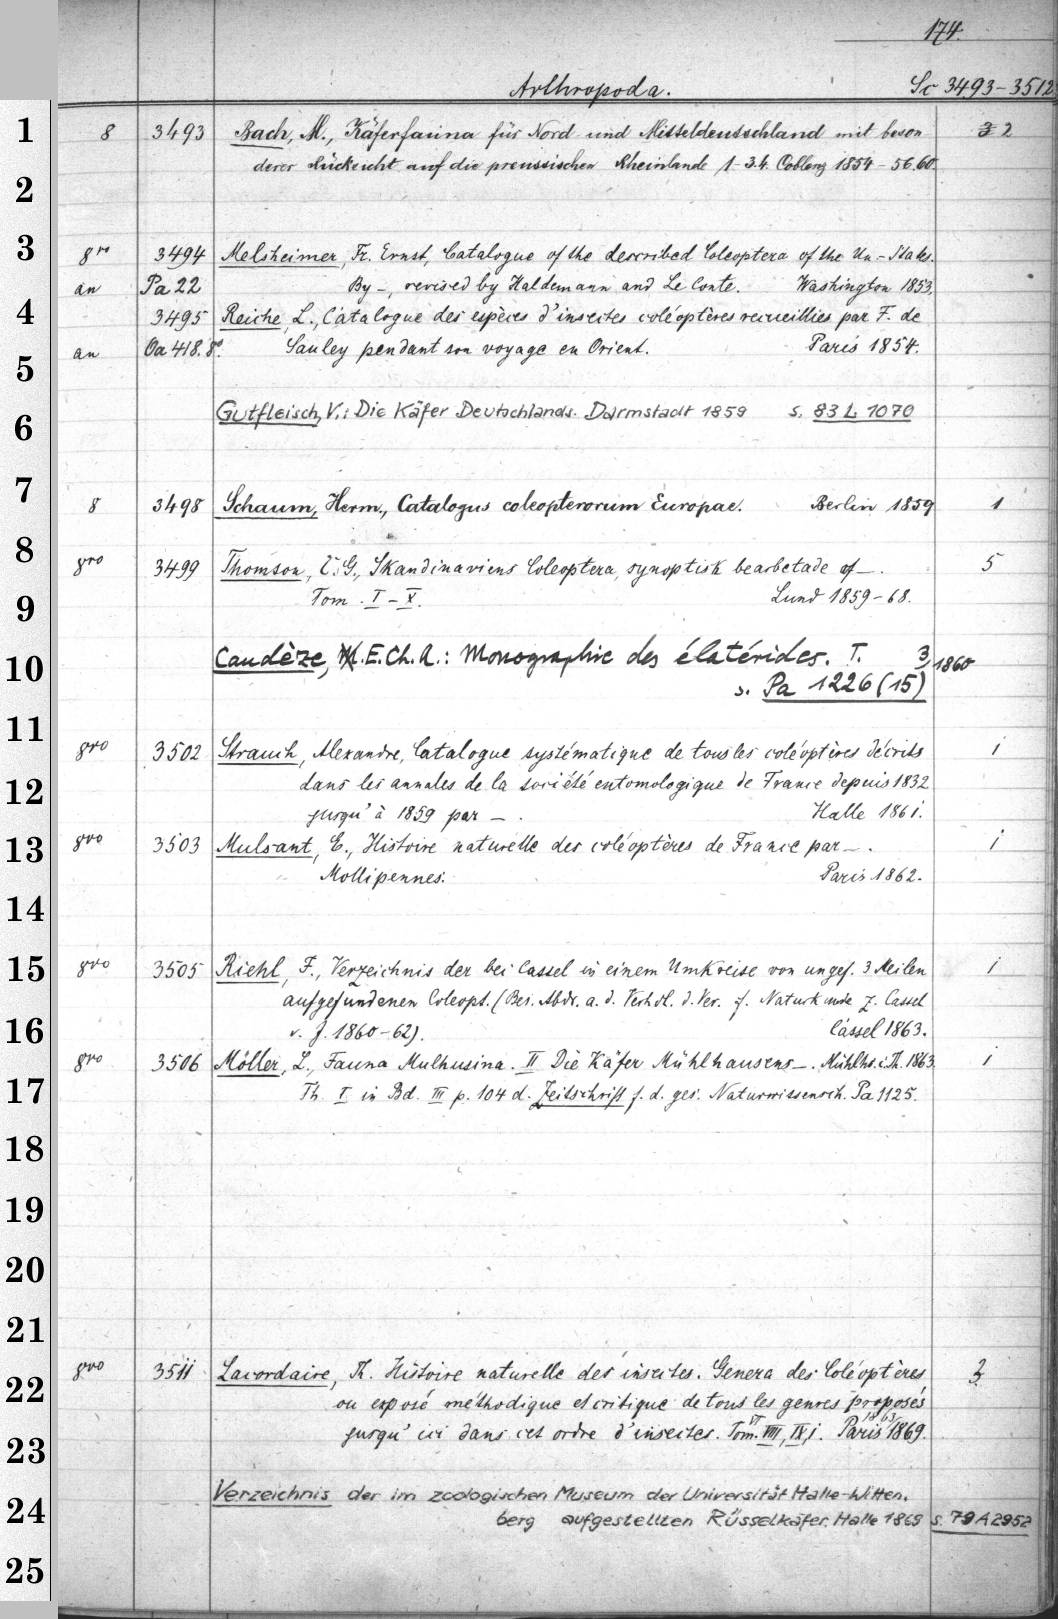 174.
Arthropoda. Sc 3493-3512
1 8 3493 Bach, M., Käferfauna für Nord und Mitteldeutschland mit beson 3 2
derer Rücksicht auf die preussischen Rheinlande 1-3.4. Coblenz 1854-56.60.
2
3 8ro 3494 Melsheimer, Fr. Ernst, Catalogue of the described Coleoptera of the Un-States.
an Pa 22 By-, revised by Haldemann and Le Conte. Washington 1853.
4 3495 Reiche, L., Catalogue des espèces d'insectes coléoptères recueillies par F. de
an Oa 418.8°. Sauley pendant son voyage en Orient. Paris 1854.
5
6 Gutfleisch, V.: Die Käfer Deutschlands. Darmstadt 1859 s. 83 L 1070
7 8 3498 Schaum, Herm., Catalogus coleopterorum Europae. Berlin 1859 1
8 8vo 3499 Thomson, C.G., Skandinaviens Coleoptera, synoptisk bearbetade af-. 5
9 Tom. I-X. Lund 1859-68.
10 Candèze, E.Ch.A.: Monographie des élatérides. T. 3, 1860
s. Pa 1226 (15)
11 8vo 3502 Strauch, Alexandre, Catalogue systématique de tous les coléoptères décrits 1
12 dans les annales de la société entomologique de France depuis 1832
jusqu' à 1859 par -. Halle 1861.
13 8vo 3503 Mulsant, E., Histoire naturelle des coléoptères de France par-. 1
Mollipennes. Paris 1862.
14
15 8vo 3505 Riehl, F., Verzeichnis der bei Cassel in einem Umkreise von ungef. 3 Meilen 1
aufgefundenen Coleopt. (Bes. Abdr. a. d. Verhdl. d. Ver. f. Naturkunde z. Cassel
16 v. J. 1860-62). Cassel 1863.
8vo 3506 Möller, L., Fauna Mulhusina. II Die Käfer Mühlhausens-. Mühlhs. i. Th. 1863. 1
17 Th. I in Bd. III p. 104 d. Zeitschrift f. d. ges. Naturwissensch. Pa 1125.
18
19
20
21
22 8vo 3511 Lacordaire, Th. Histoire naturelle des insectes. Genera des Coléoptères 3
ou exposé méthodique et critique de tous les genres proposés
23 jusqu' ici dans cet ordre d'insectes. Tom. VI VIII, IX,1. Paris 1863, 1869.
24 Verzeichnis der im zoologischen Museum der Universität Halle-Witten.
berg aufgestellten Rüsselkäfer. Halle 1869 s. 79 A 2952
25